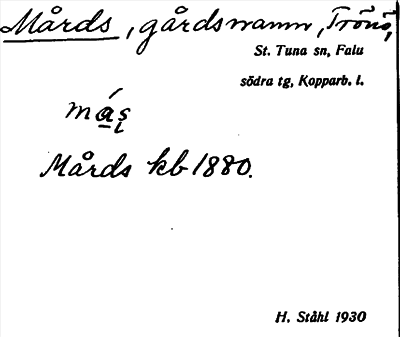 Mårds, gårdsnamn, Trönö,
St. Tuna sn, Falu
södra tg, Kopparb. l.
Mårds kb 1880.
H. Ståhl 1930